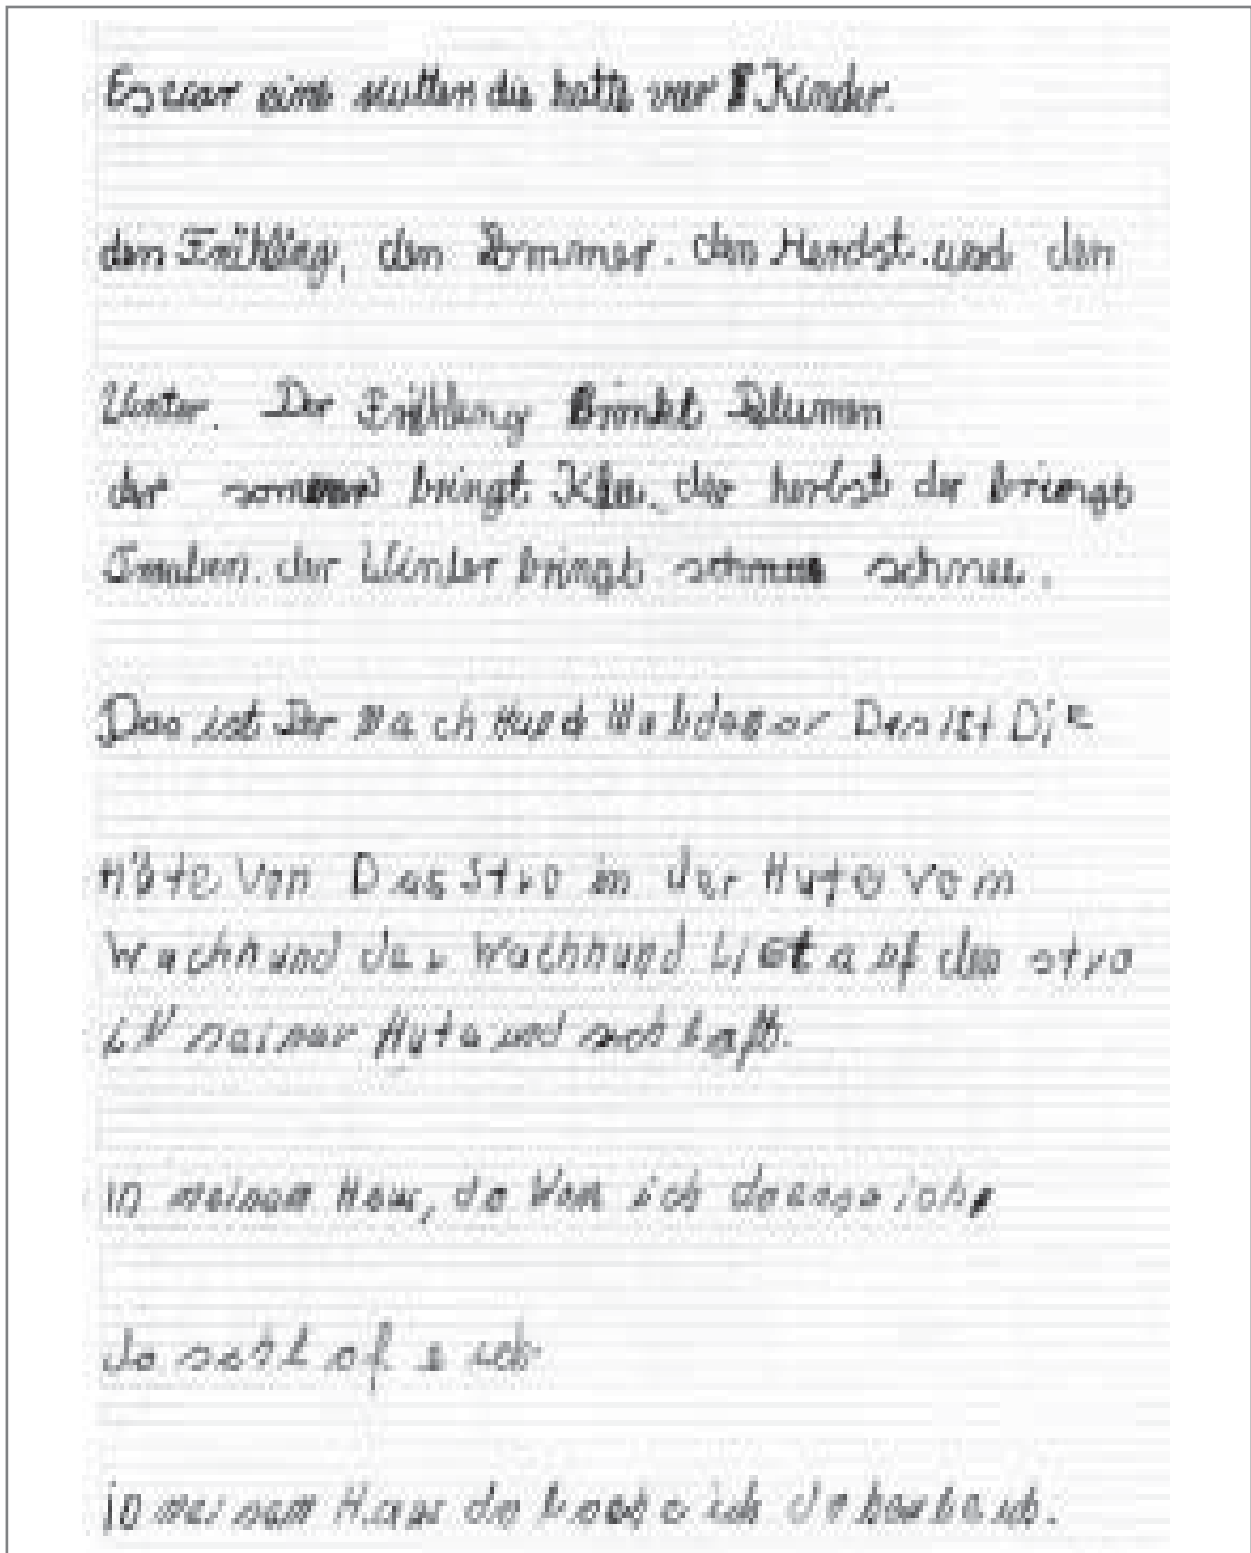 Es war eine mutter die hatte vier Kinder.
den Frühling, den Sommer. den Herbst. und den
Winter. Der Frühling Brinkt Blumen
der sommer bringt Klee. der herbst der bringt
Trauben. der Winter bringt schnee.
Das ist Der Wachhund Das ist Die
Hüte Von Das Stro in der Hüte vom
Wachhund der Wachhund List auf den stro
iN seiner Hüte und
in meinem Haus, do Von ich
do ich
in meinem Haus do ich